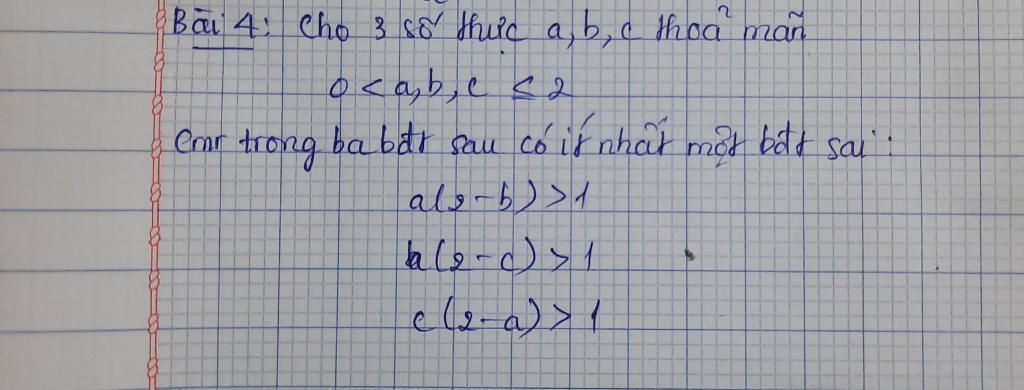 Bài 4: Cho 3 số thực a, b, c thoả mãn
0 < a, b, c ≤ 2
Cmr trong ba bđt sau có ít nhất một bđt sai:
a(2-b) > 1
b(2-c) > 1
c(2-a) > 1